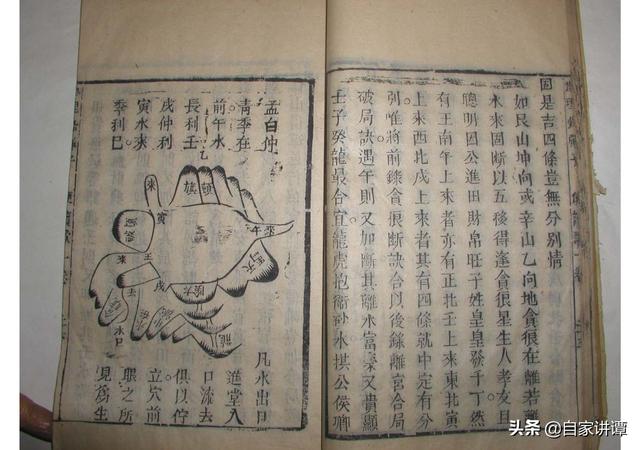 固是吉四條豈無分別情
如艮山坤向或辛山乙向地貪狠在離若離
水來固斷以五後得逢貪狠星生人孝友且
聰明因公進田財帛旺子姓皇皇發千丁然
有王南午上來者亦有正北壬上來東北寅
上來西北戌上來者其有四條就中定有分
别惟將前錄貪狠斷訣合以後錄離宮合局
破局訣遇午則又加斷其離水富榮又貴顯
壬子癸龍最合宜龍虎抱衛砂水拱公侯卿
孟白仲
青季在
前午水
長利壬
戌仲利
寅水來
季利巳
乙
來
午
寅
來
壬
戌
去
水口
凡水出口
進堂入
口流去
俱以佇
立穴前
眼之所
見為生
头条 @自家讲谭